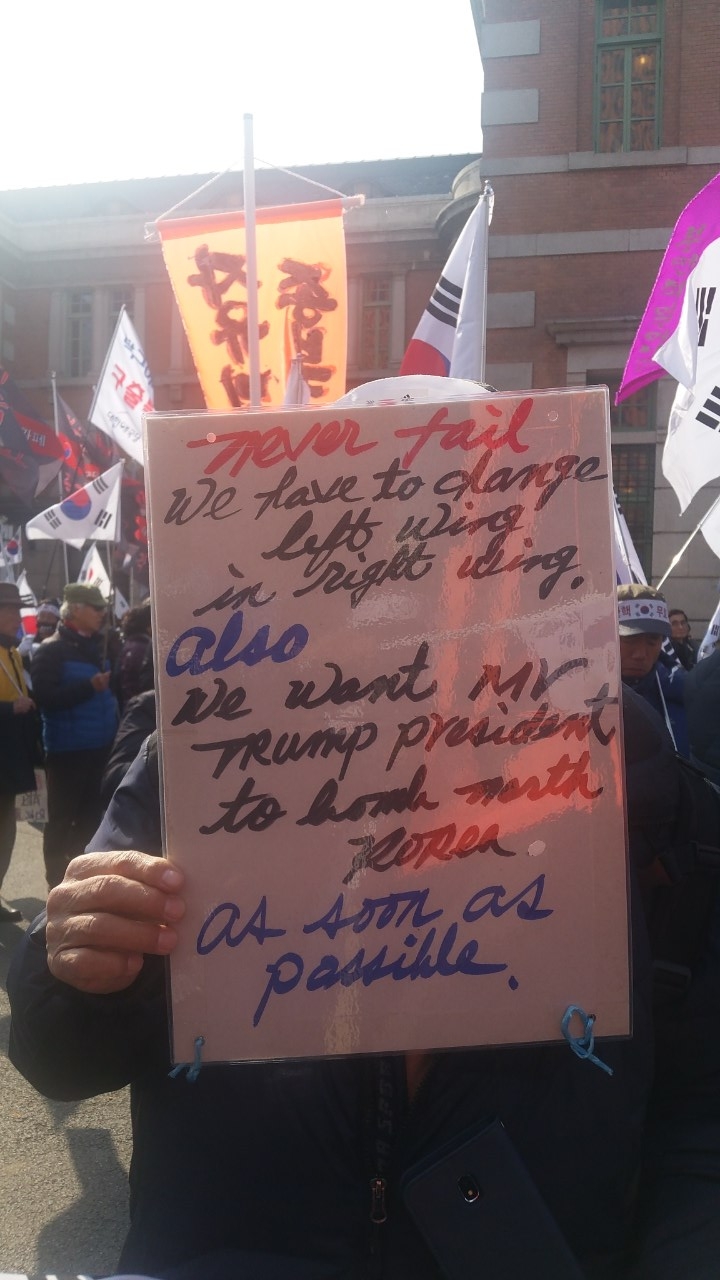 never fail
We have to change
left wing
in right wing.
also
We want Mr
Trump president
to bomb north
Korea
as soon as
possible.
탄핵
카페